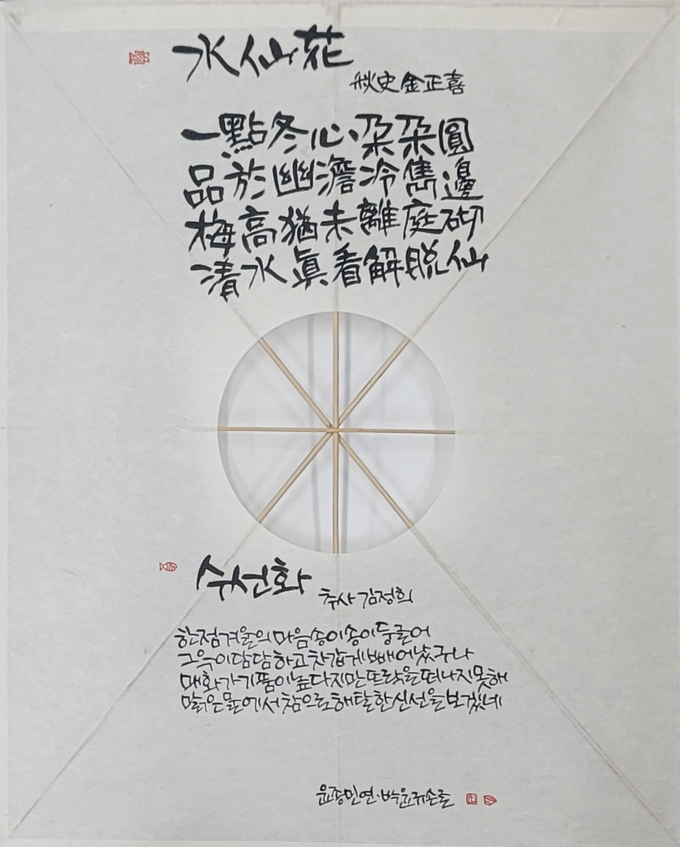 水仙花
秋史 金正喜
一點冬心朶朶圓
品於幽澹冷雋邊
梅高猶未離庭砌
清水眞看解脫仙
수선화
추사 김정희
한점 겨울의 마음 송이송이 둥글어
그윽이 담담하고 차갑게 빼어났구나
매화가 기품이 높다지만 뜨락을 떠나지 못해
맑은 물에서 참으로 해탈한 신선을 보겠네
윤종민 연·박윤규 손글